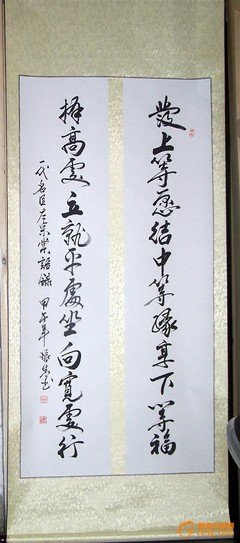 發上等愿结中等緣享下等福
择高處立就平處坐向寬處行
一代名臣左宗棠語錄 甲午年